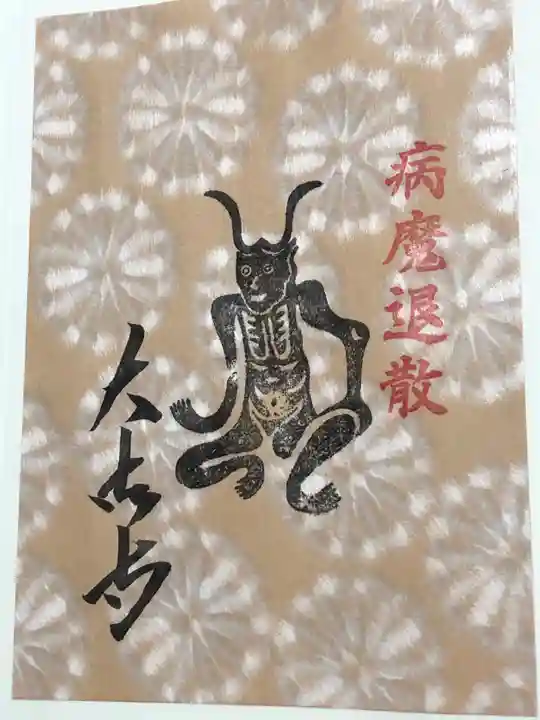 病魔退散
大吉歩